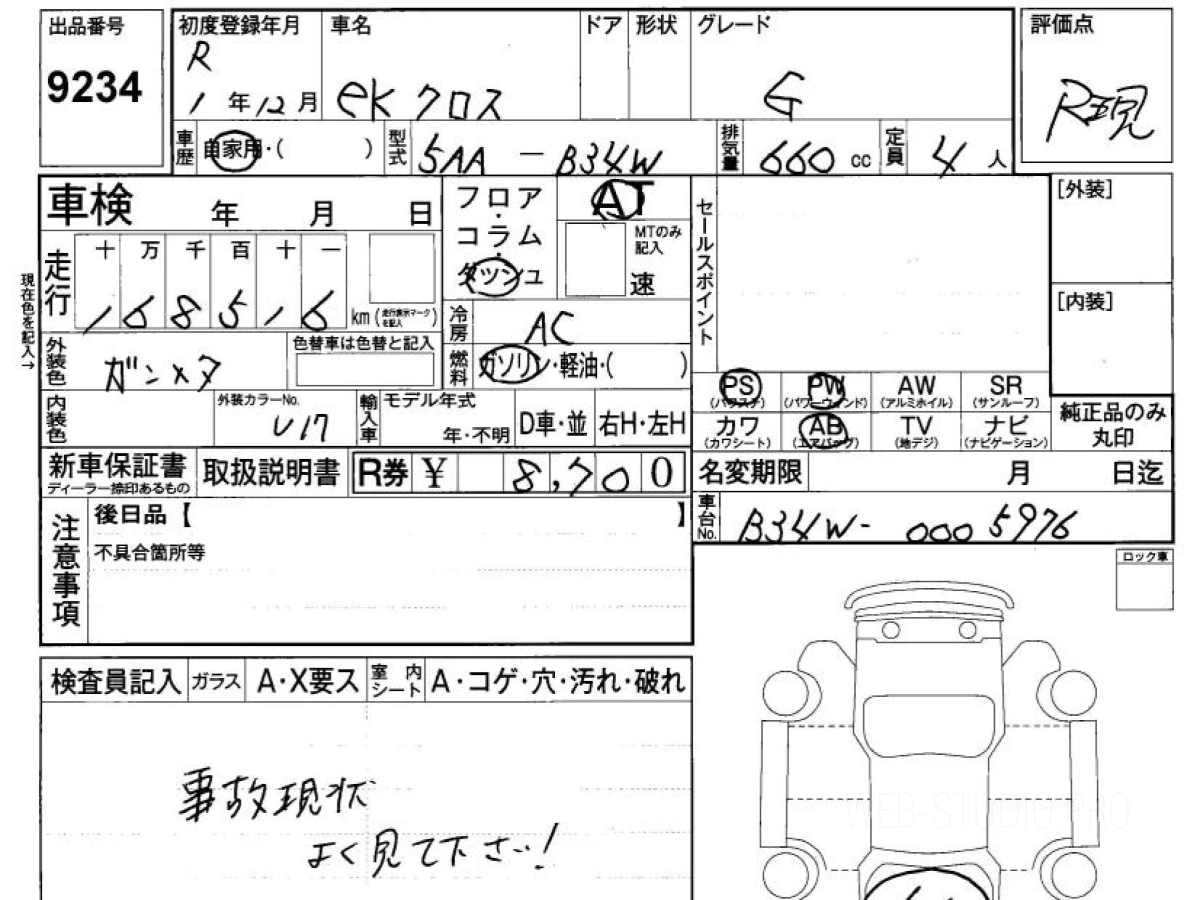 出品番号
9234
初度登録年月 車名 ドア 形状 グレード
R
1年12月 eKクロス G
評価点
R現
車歴 自家用・( ) 型式 5AA-B34W 排気量 660cc 定員 4人
車検 年 月 日
フロア・コラム・ダッシュ
AT
MTのみ記入
速
セールスポイント
[外装]
[内装]
現在色を記入→
走行 十 万 千 百 十 一
168516 km(走行表示マークを記入)
冷房 AC
燃料 ガソリン・軽油・( )
外装色 ガンメタ 色替車は色替と記入
PS(パワステ) PW(パワーウィンド) AW(アルミホイル) SR(サンルーフ)
カワ(カワシート) AB(エアバッグ) TV(地デジ) ナビ(ナビゲーション)
純正品のみ丸印
内装色 外装カラーNo. U17 輸入車 モデル年式 年・不明 D車・並 右H・左H
新車保証書 ディーラー捺印あるもの 取扱説明書 R券 ¥ 8,700
名変期限 月 日迄
車台No. B34W-0005976
注意事項 後日品【 】
不具合箇所等
ロック車
検査員記入 ガラス A・X要ス 室内シート A・コゲ・穴・汚れ・破れ
事故現状
よく見て下さい!
WEB-STUDIO.PRO